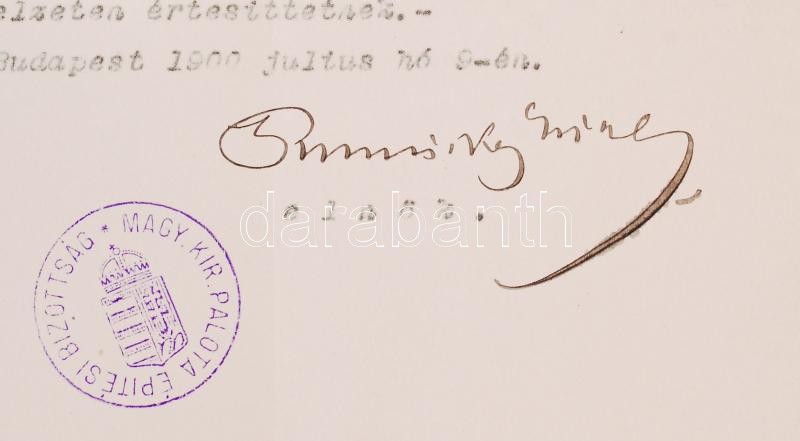 elzeten értesittetnek.-
Budapest 1900 julius hó 9-én.
elnök.
darabanth
* MAGY. KIR. PALOTA ÉPITÉSI BIZOTTSÁG